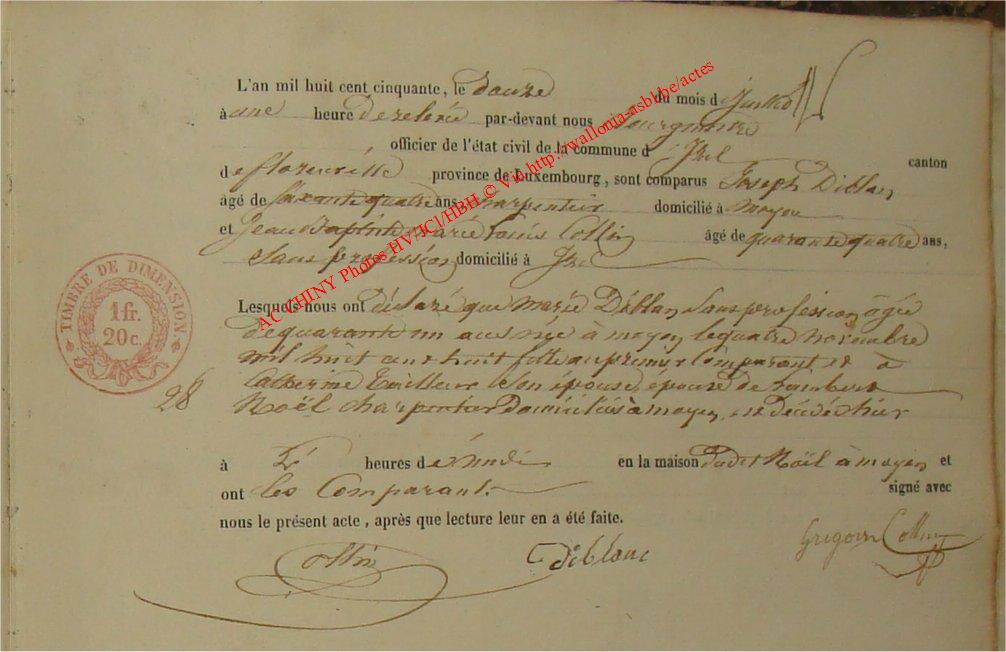 L'an mil huit cent cinquante, le douze du mois d juillet
à une heure de relevée par-devant nous Bourgmestre
officier de l'état civil de la commune d'Izel canton
de florenville province de Luxembourg, sont comparus Joseph Diblan
âgé de soixante quatre ans charpentier domicilié à moyen
et Jean Baptiste marie Louis Collin âgé de quarante quatre ans,
sans profession domicilié à Izel
Lesquels nous ont déclaré que marie Diblan, sans profession, âgée
de quarante un ans née à moyen le quatre novembre
mil huit cent huit fille au premier Comparant et à
Catherine Tailleur son épouse, épouse de Lambert
28
Noël charpentier domiciliés à moyen, est décédée hier
à heures de midi en la maison dudit Noël à moyen et
ont les Comparant signé avec
nous le présent acte, après que lecture leur en a été faite.
Collin Diblanc Grégoire Collin
TIMBRE DE DIMENSION
1 fr.
20 c.
AC CHINY Photos HV/JCl/HBH © Via http://wallonia-asbl.be/actes